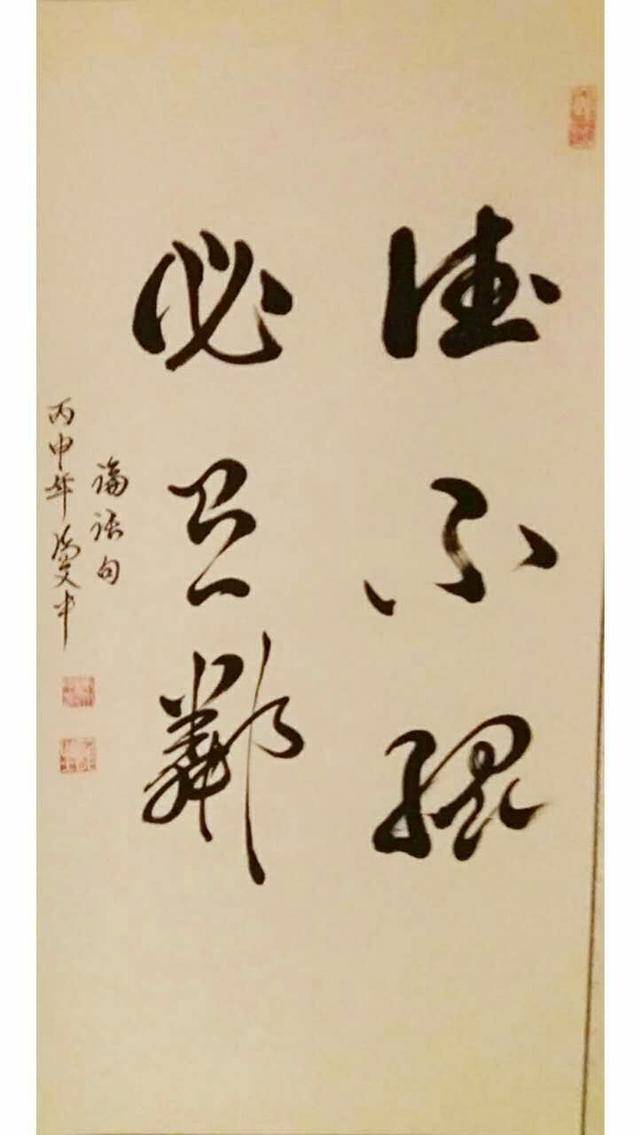 德不孤
必有鄰
論語句
丙申年